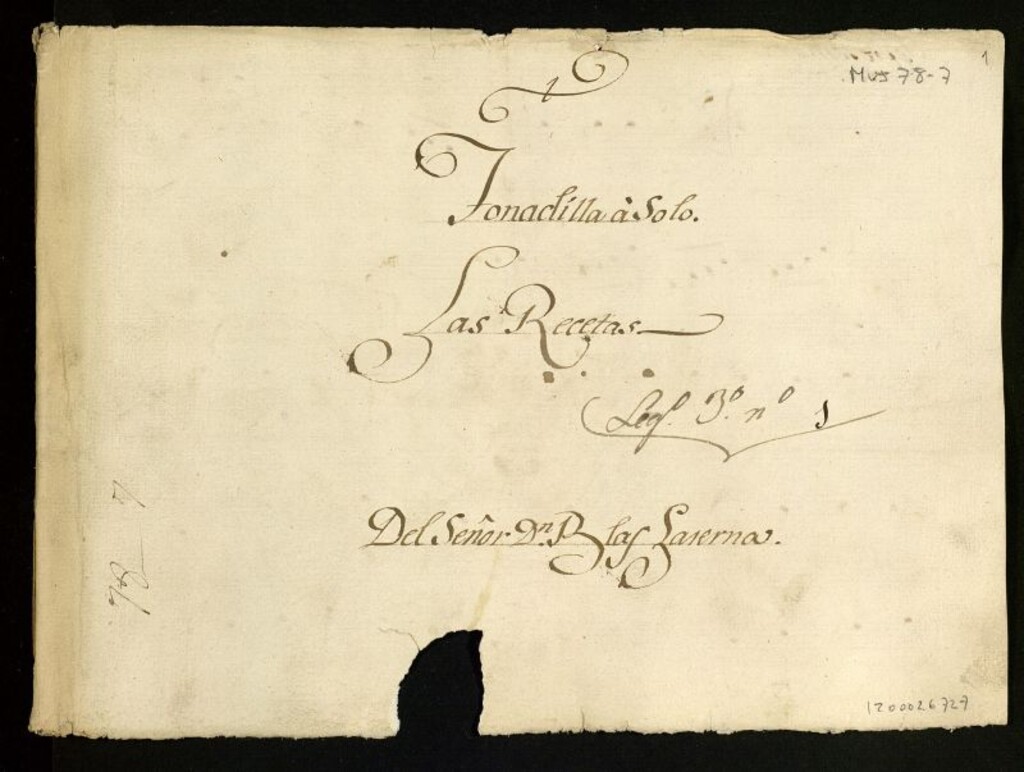 1
Mus 78-7
Tonadilla à Solo.
Las Recetas
Legº. 3º. nº 1
Del Señor Dn. Blas Laserna.
1200026727